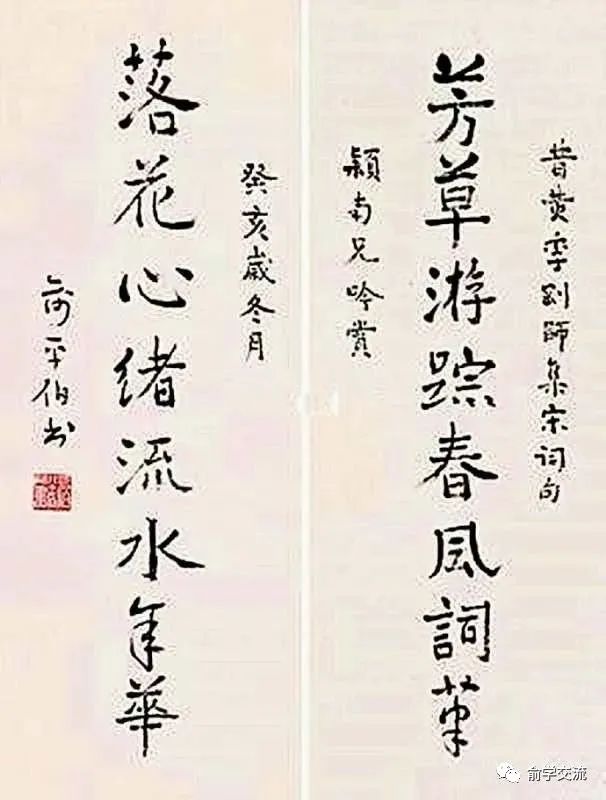 昔黄季刚師集宋词句
芳草游踪春風詞筆
穎南兄吟賞
癸亥歲冬月
落花心緒流水年華
俞平伯书
俞学交流